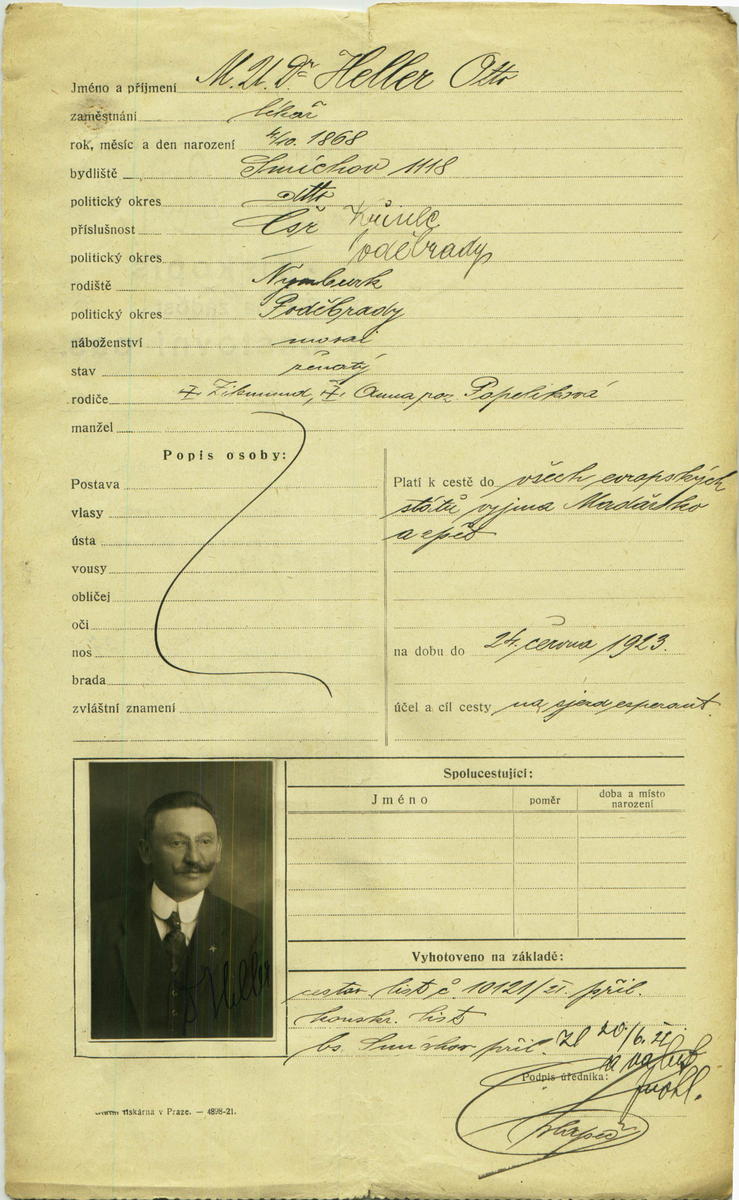 Jméno a příjmení M. U. Dr Heller Otto
zaměstnání lékař
rok, měsíc a den narození 4/10. 1868
bydliště Smíchov 1118
politický okres dtto
příslušnost Čsr
politický okres — Poděbrady
rodiště Nymburk
politický okres Poděbrady
náboženství mosai
stav ženatý
rodiče Zikmund, Anna roz. Popeliková
manžel
Popis osoby:
Postava
vlasy
ústa
vousy
obličej
oči
nos
brada
zvláštní znamení
Platí k cestě do všech evropských
států vyjma Maďarsko
a zpět
na dobu do 24. června 1923.
účel a cíl cesty na sjezd esperant.
Dr Heller
Spolucestující:
Jméno poměr doba a místo narození
Vyhotoveno na základě:
cestov. list č. 10121/21. přil.
konskr. list
bs. Smíchov přil. 20/6. 21.
Podpis úředníka:
tiskárna v Praze. — 4898-21.